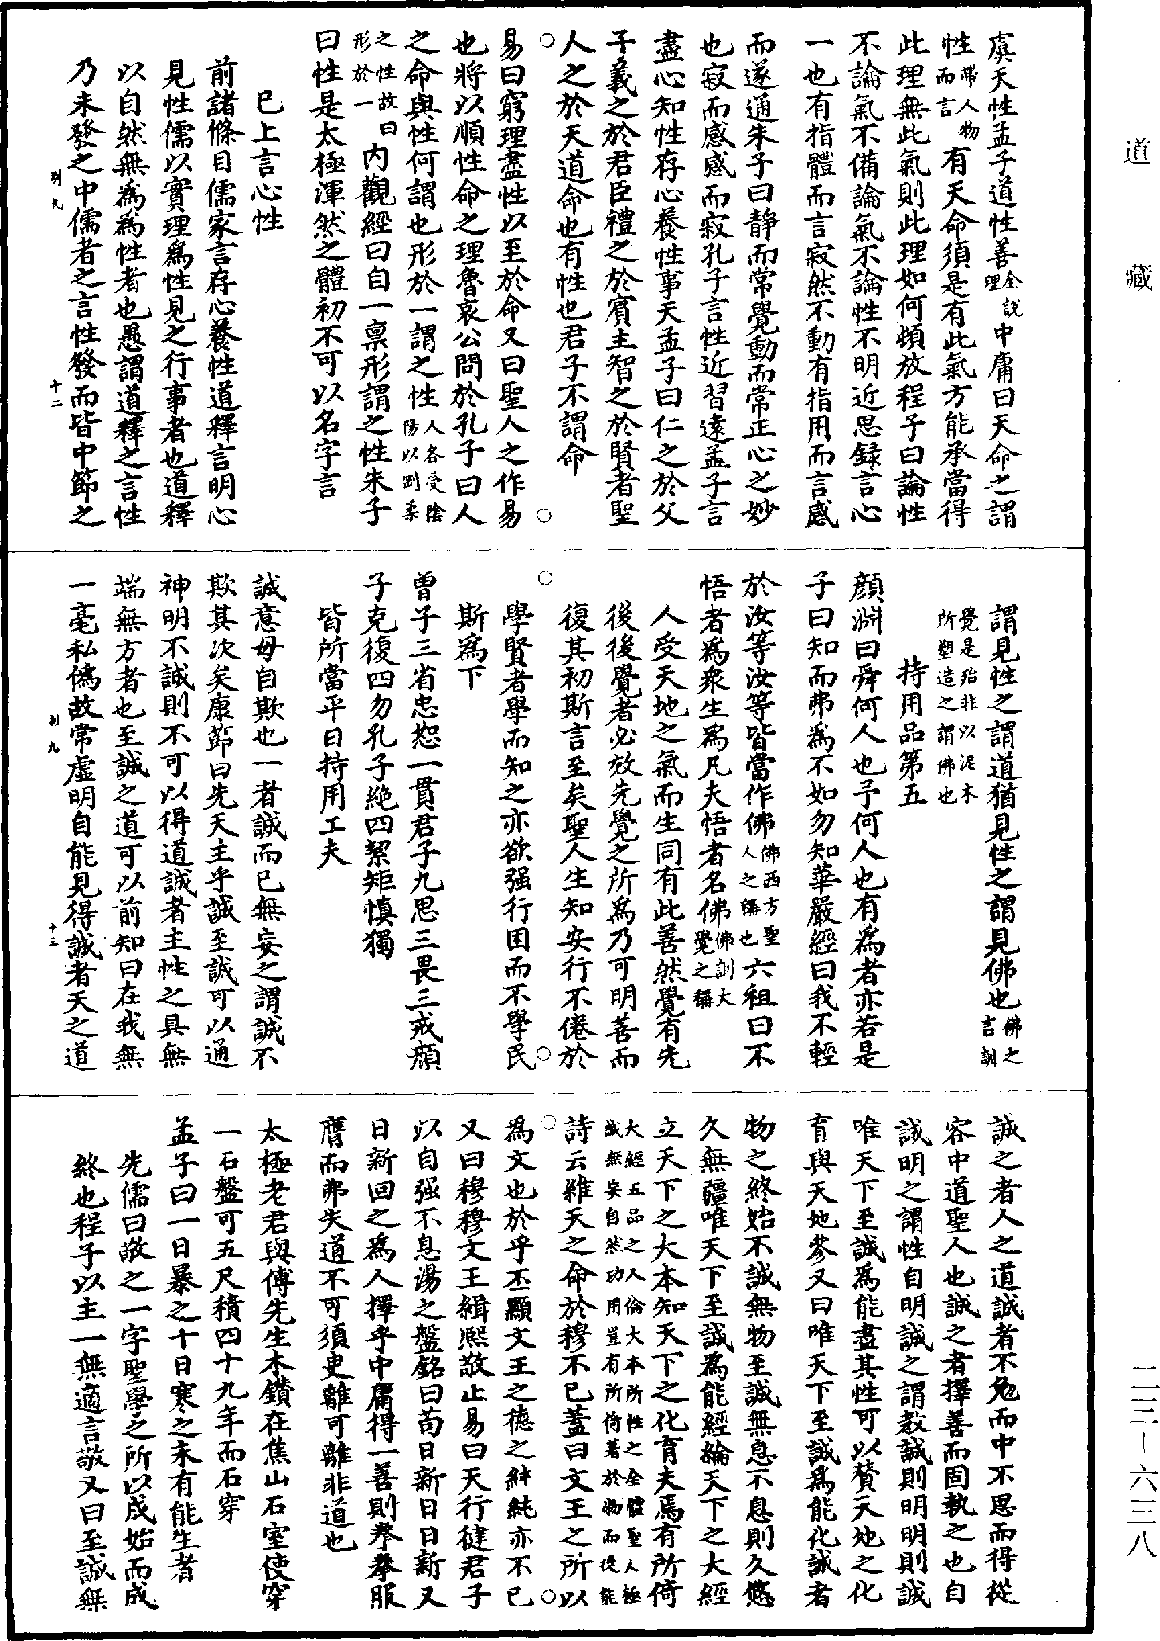 道藏
虞天性孟子道性善全說理中庸曰天命之謂
性帶人物而言有天命須是有此氣方能承當得
此理無此氣則此理如何頓放程子曰論性
不論氣不備論氣不論性不明近思錄言心
一也有指體而言寂然不動有指用而言感
而遂通朱子曰靜而常覺動而常正心之妙
也寂而感感而寂孔子言性近習遠孟子言
盡心知性存心養性事天孟子曰仁之於父
子義之於君臣禮之於賓主智之於賢者聖
人之於天道命也有性也君子不謂命
○易曰窮理盡性以至於命又曰聖人之作易○
也將以順性命之理魯哀公問於孔子曰人
之命與性何謂也形於一謂之性人各受陰陽以剛柔
之性故曰形於一內觀經曰自一稟形謂之性朱子
曰性是太極渾然之體初不可以名字言
已上言心性
前諸條目儒家言存心養性道釋言明心
見性儒以實理爲性見之行事者也道釋
以自然無為為性者也愚謂道釋之言性
乃未發之中儒者之言性發而皆中節之
別九 十二
謂見性之謂道猶見性之謂見佛也佛之言朝
覺是殆非以泥木所塑造之謂佛也
持用品第五
顏淵曰舜何人也予何人也有為者亦若是
子曰知而弗為不如勿知華嚴經曰我不輕
於汝等汝等皆當作佛佛西方聖人之稱也六祖曰不
悟者為衆生為凡夫悟者名佛佛訓大覺之稱
人受天地之氣而生同有此善然覺有先
後後覺者必放先覺之所為乃可明善而
復其初斯言至矣聖人生知安行不倦於
○學賢者學而知之亦欲强行困而不學民○
斯為下
曾子三省忠恕一貫君子九思三畏三戒顏
子克復四勿孔子絶四絜矩慎獨
皆所當平日持用工夫
誠意毋自欺也一者誠而已無妄之謂誠不
欺其次矣康節曰先天主乎誠至誠可以通
神明不誠則不可以得道誠者主性之具無
端無方者也至誠之道可以前知曰在我無
一毫私僞故常虛明自能見得誠者天之道
別九 十三
誠之者人之道誠者不勉而中不思而得從
容中道聖人也誠之者擇善而固執之也自
誠明之謂性自明誠之謂教誠則明明則誠
唯天下至誠為能盡其性可以贊天地之化
育與天地參又曰唯天下至誠為能化誠者
物之終始不誠無物至誠無息不息則久悠
久無疆唯天下至誠為能經綸天下之大經
立天下之大本知天下之化育夫焉有所倚
大經五品之人倫大本所性之全體聖人極誠無妄自然功用豈有所倚著於物而後能
詩云維天之命於穆不已蓋曰文王之所以
○為文也於乎丕顯文王之德之純純亦不已○
又曰穆穆文王緝熙敬止易曰天行健君子
以自强不息湯之盤銘曰苟日新日日新又
日新回之為人擇乎中庸得一善則拳拳服
膺而弗失道不可須臾離可離非道也
太極老君與傅先生木鑽在焦山石室使穿
一石盤可五尺積四十九年而石穿
孟子曰一日暴之十日寒之未有能生者
先儒曰敬之一字聖學之所以成始而成
終也程子以主一無適言敬又曰至誠無
二二三-六三八